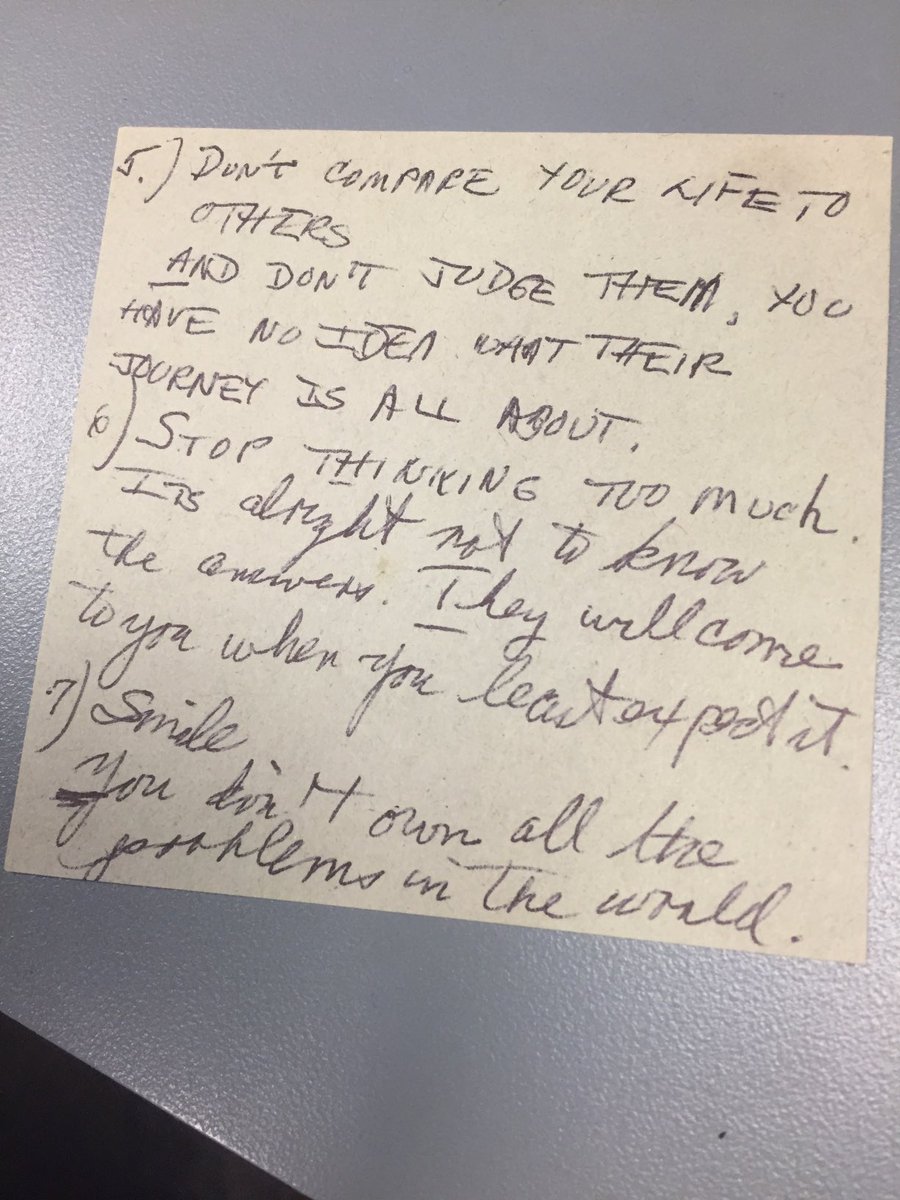 5.) DON'T COMPARE YOUR LIFE TO
OTHERS
AND DON'T JUDGE THEM, YOU
HAVE NO IDEA WHAT THEIR
JOURNEY IS ALL ABOUT.
6) STOP THINKING TOO much.
Its alright not to know
the answers. They will come
to you when you least expect it.
7) Smile
You don't own all the
problems in the world.